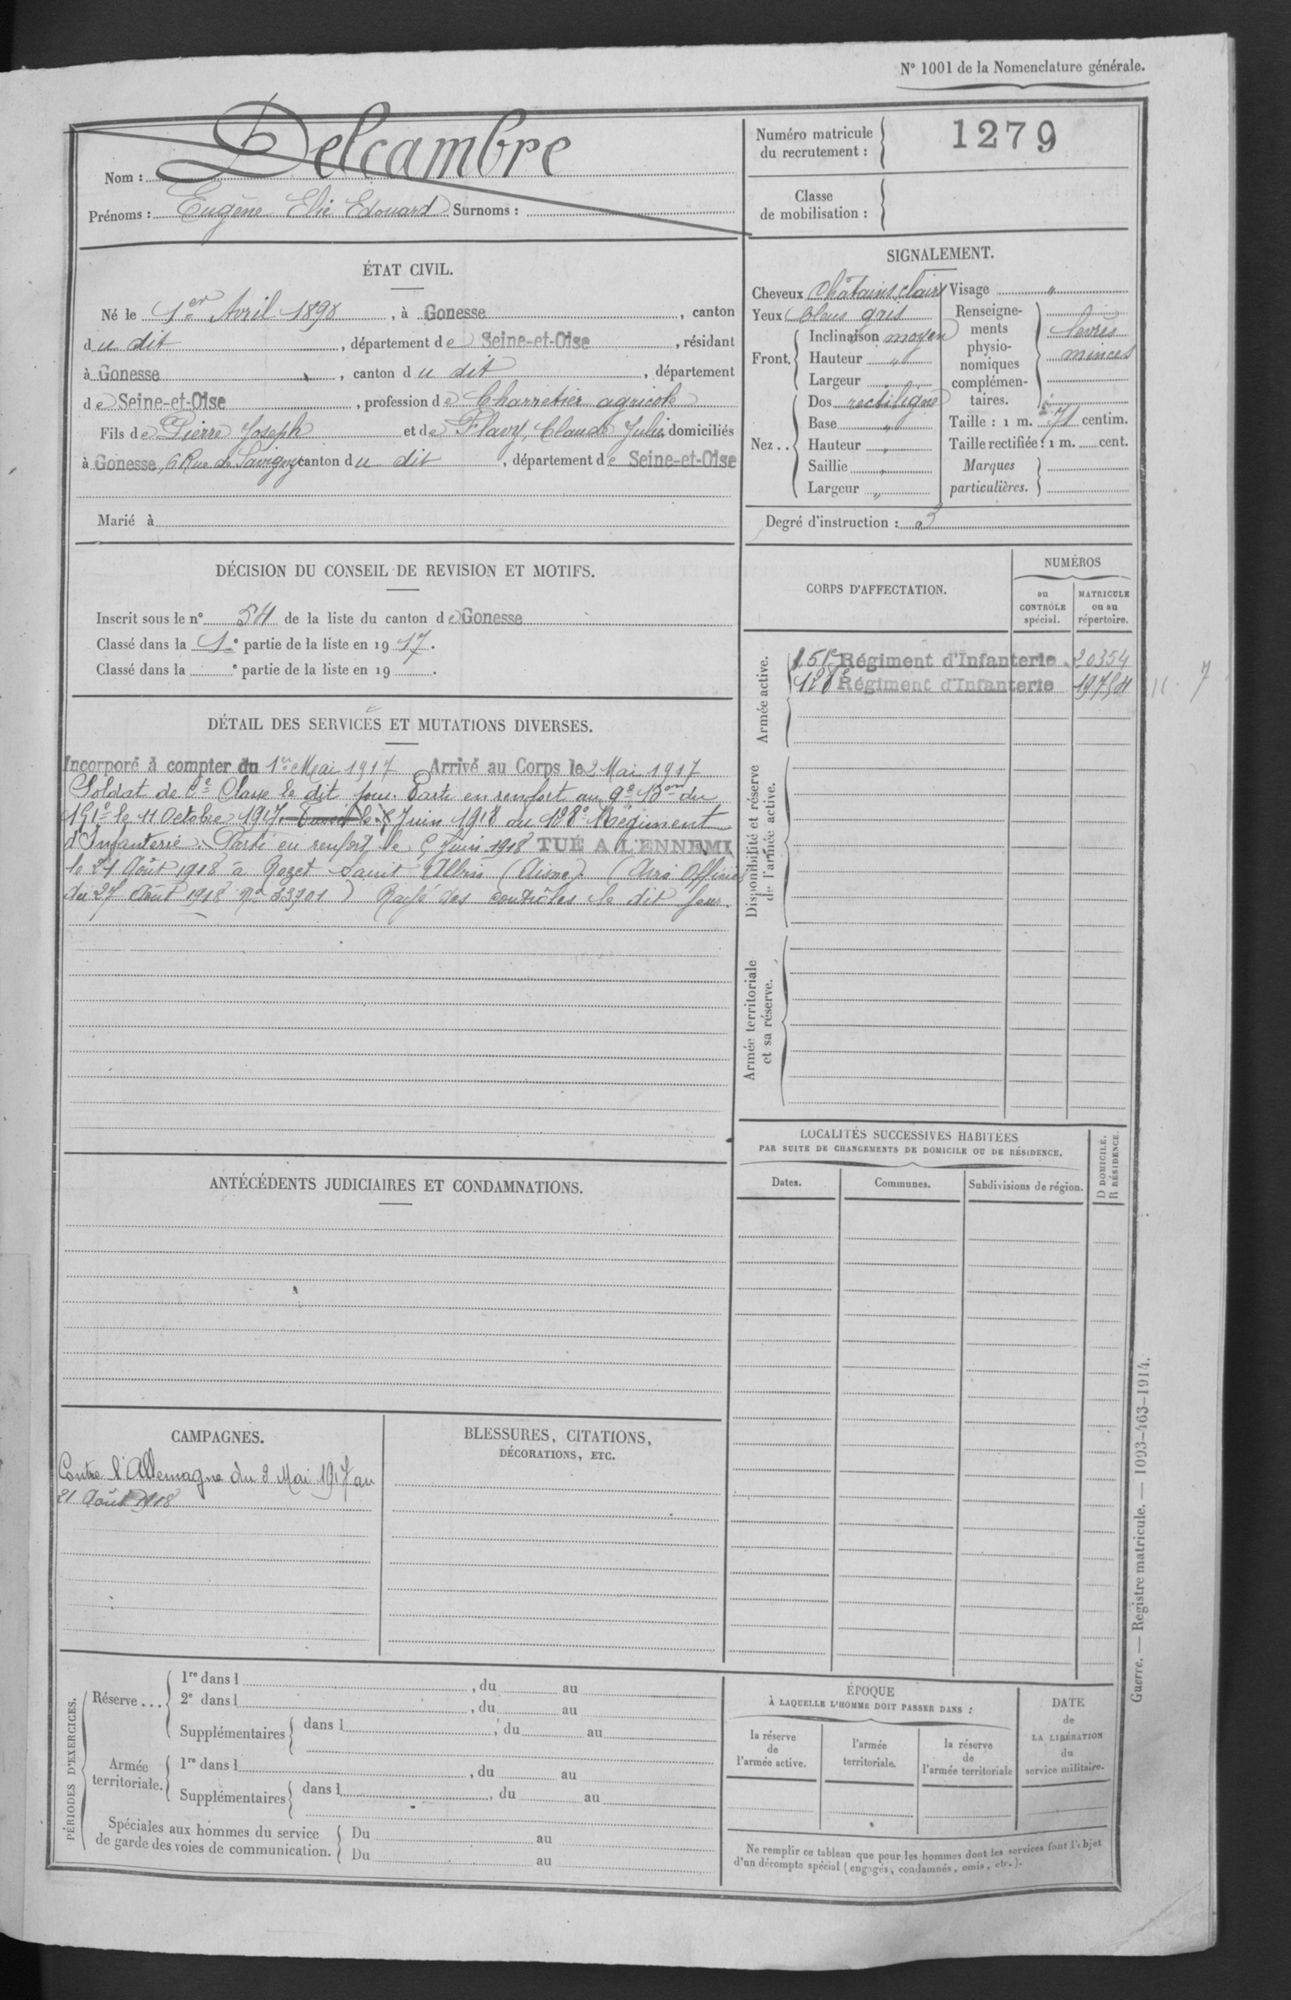 N° 1001 de la Nomenclature générale.
Nom : Delcambre
Prénoms : Eugène Elie Edouard Surnoms :
Numéro matricule du recrutement : 1279
Classe de mobilisation :
ÉTAT CIVIL.
Né le 1er Avril 1898, à Gonesse, canton
du dit, département de Seine-et-Oise, résidant
à Gonesse, canton du dit, département
de Seine-et-Oise, profession de Charretier agricole
Fils de Pierre Joseph et de Flavy, Claude Julie domiciliés
à Gonesse, 6 Rue de Savigny canton du dit, département de Seine-et-Oise
Marié à
SIGNALEMENT.
Cheveux châtains clairs Visage "
Yeux bleus gris
Front. Inclinaison moyen
Hauteur "
Largeur "
Nez.. Dos rectiligne
Base "
Hauteur "
Saillie "
Largeur "
Renseignements physionomiques complémentaires. lèvres minces
Taille : 1 m. 71 centim.
Taille rectifiée : 1 m. cent.
Marques particulières.
Degré d'instruction : 3
DÉCISION DU CONSEIL DE REVISION ET MOTIFS.
Inscrit sous le n° 54 de la liste du canton de Gonesse
Classé dans la 1e partie de la liste en 1917.
Classé dans la e partie de la liste en 19 .
CORPS D'AFFECTATION.
NUMÉROS
au CONTRÔLE spécial.
MATRICULE ou au répertoire.
Armée active.
151e Régiment d'Infanterie. 20354
128e Régiment d'Infanterie
Disponibilité et réserve de l'armée active.
Armée territoriale et sa réserve.
DÉTAIL DES SERVICES ET MUTATIONS DIVERSES.
Incorporé à compter du 1er Mai 1917 Arrivé au Corps le 2 Mai 1917
Soldat de 2e Classe le dit jour. Parti en renfort au 9e Bon du
151e le 11 Octobre 1917. Juin 1918 du 128e Regiment
d'Infanterie. Parti en renfort le 5 Juin 1918 TUÉ A L'ENNEMI
le 21 Août 1918 à Rozet Saint Albin (Aisne) (Avis Officiel
du 27 Août 1918 No 33701) Rayé des contrôles le dit jour.
ANTÉCÉDENTS JUDICIAIRES ET CONDAMNATIONS.
LOCALITÉS SUCCESSIVES HABITÉES
PAR SUITE DE CHANGEMENTS DE DOMICILE OU DE RÉSIDENCE.
Dates.
Communes.
Subdivisions de région.
D DOMICILE.
R RÉSIDENCE.
CAMPAGNES.
Contre l'Allemagne du 2 Mai 1917 au
21 Août 1918
BLESSURES, CITATIONS,
DÉCORATIONS, ETC.
PÉRIODES D'EXERCICES.
Réserve... 1re dans l , du au
2e dans l , du au
Supplémentaires dans l , du au
Armée territoriale. 1re dans l , du au
Supplémentaires dans l , du au
Spéciales aux hommes du service
de garde des voies de communication.
Du au
Du au
ÉPOQUE
À LAQUELLE L'HOMME DOIT PASSER DANS :
la réserve de l'armée active.
l'armée territoriale.
la réserve de l'armée territoriale
DATE de LA LIBÉRATION du service militaire.
Ne remplir ce tableau que pour les hommes dont les services font l'objet
d'un décompte spécial (engagés, condamnés, omis, etc.).
Guerre. — Registre matricule. — 1093-463-1914.